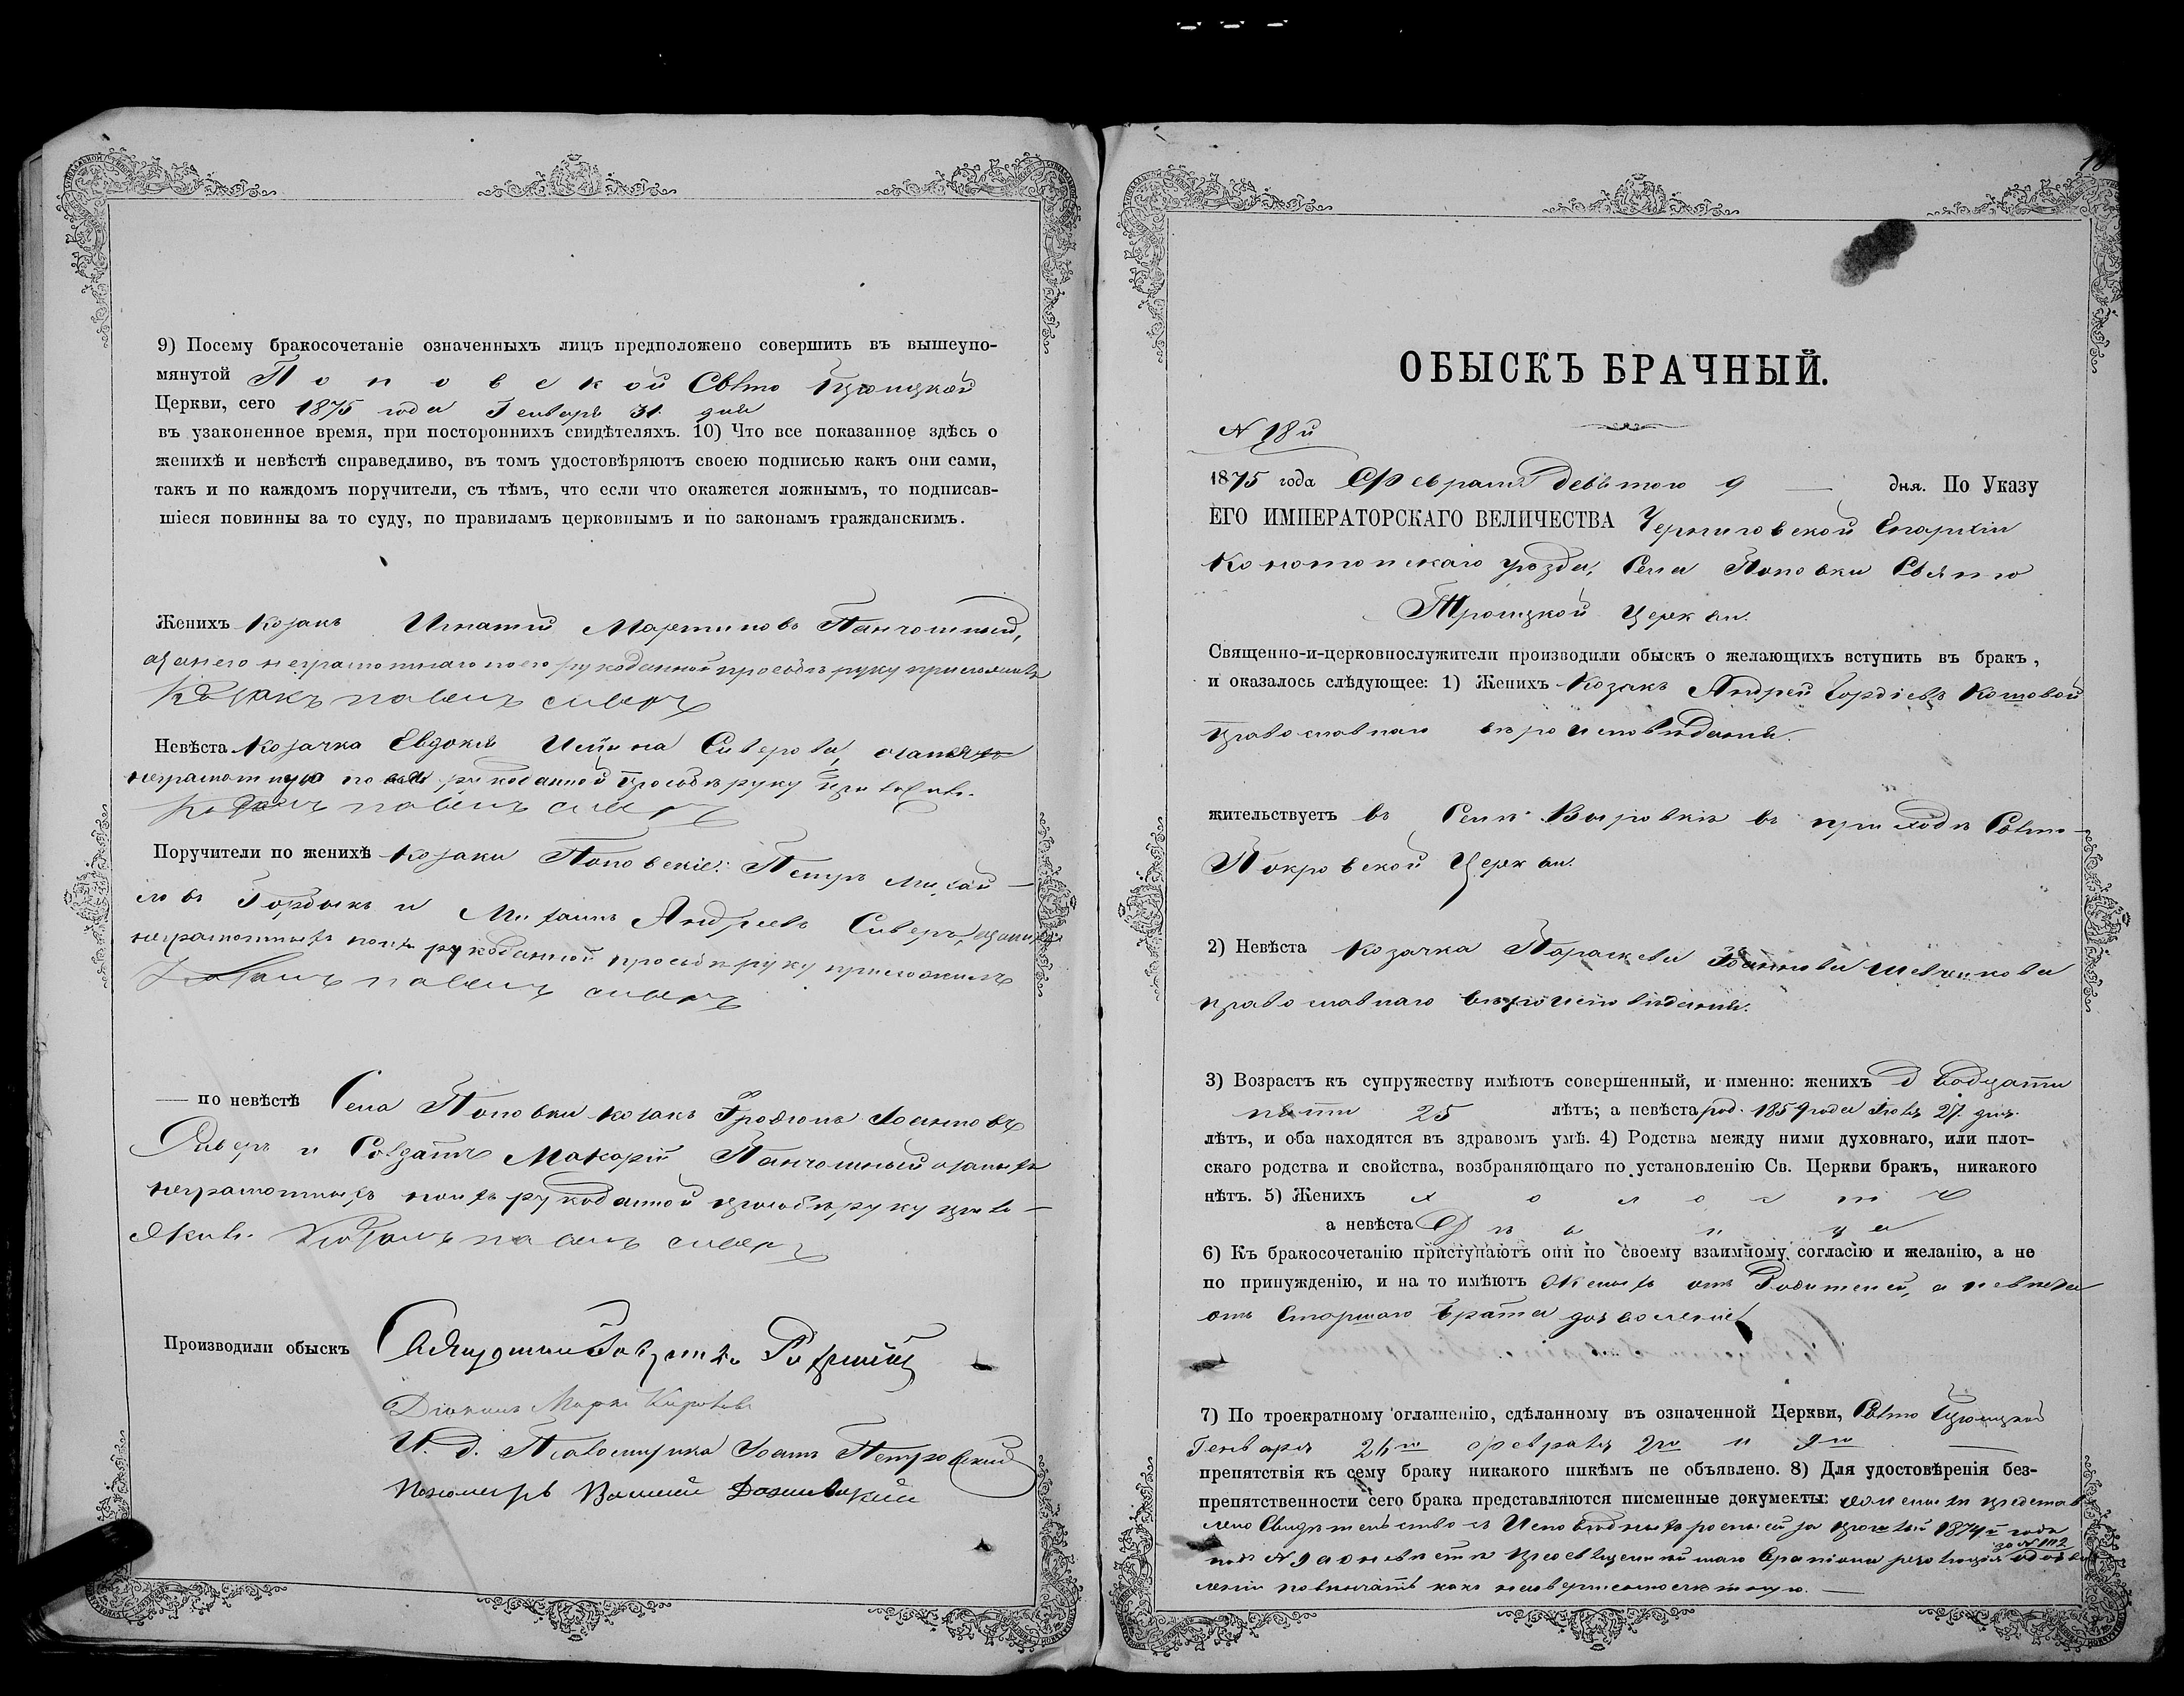 9) Посему бракосочетаніе означенныхъ лицъ предположено совершить въ вышеупо-
мянутой Поповской Свято Троицкой
Церкви, сего 1875 года Генваря 31 дня
въ узаконенное время, при постороннихъ свидѣтеляхъ. 10) Что все показанное здѣсь о
женихѣ и невѣстѣ справедливо, въ томъ удостовѣряютъ своею подписью какъ они сами,
такъ и по каждомъ поручители, съ тѣмъ, что если что окажется ложнымъ, то подписав-
шіеся повинны за то суду, по правиламъ церковнымъ и по законамъ гражданскимъ.
Женихъ Козакъ Игнатій Мартиновъ Панчошный,
а за него неграмотнаго по его рукоданной просьбѣ руку приложилъ
Козакъ павелъ сиверъ
Невѣста Козачка Евдокія Сиверова,
неграмотную по рукоданной просьбѣ руку
павелъ сиверъ
Поручители по женихѣ Козаки Поповскіе: Петръ Михай-
ловъ и Михаилъ Андреевъ Сиверъ,
неграмотныхъ по ихъ рукоданной просьбѣ руку приложилъ
Козакъ павелъ сиверъ
— по невѣстѣ Села Поповки козакъ Іоанновъ
Сиверъ и Солдатъ Макарій Панчошный а за нихъ
неграмотныхъ по ихъ рукоданной просьбѣ руку
Козакъ павелъ сиверъ
Производили обыскъ Священникъ
Діаконъ Марко
И. д. Псаломщика Іоаннъ Петровскій
Пономарь
ОБЫСКЪ БРАЧНЫЙ.
N 18й
1875 года Февраля Девятого 9 — дня. По Указу
ЕГО ИМПЕРАТОРСКАГО ВЕЛИЧЕСТВА Черниговской Епархіи
Конотопскаго уѣзда, Села Поповки Свято
Троицкой Церкви.
Священно-и-церковнослужители производили обыскъ о желающихъ вступить въ бракъ,
и оказалось слѣдующее: 1) Женихъ Козакъ Андрей Гордіевъ Кошовой
православнаго вѣроисповѣданія.
жительствуетъ въ Селѣ Выровкѣ въ приходѣ Свято-
Покровской Церкви.
2) Невѣста Козачка Параскева Іоаннова Шевчикова
православнаго вѣроисповѣданія.
3) Возрастъ къ супружеству имѣютъ совершенный, и именно: женихъ двадцати
пяти 25 лѣтъ; а невѣста род. 1859 года 27 дня.
лѣтъ, и оба находятся въ здравомъ умѣ. 4) Родства между ними духовнаго, или плот-
скаго родства и свойства, возбраняющаго по установленію Св. Церкви бракъ, никакого
нѣтъ. 5) Женихъ холостъ
а невѣста Дѣвица
6) Къ бракосочетанію приступаютъ они по своему взаимному согласію и желанію, а не
по принужденію, и на то имѣютъ Женихъ отъ Родителей, а невѣста
отъ Старшаго брата дозволеніе
7) По троекратному оглашенію, сдѣланному въ означенной Церкви, Свято Троицкой
Генваря 26го февраля 2го и 9го —
препятствія къ сему браку никакого никѣмъ не объявлено. 8) Для удостовѣренія без-
препятственности сего брака представляются писменные документы: женихъ представ
лено Свидѣтельство съ Исповѣдныхъ росписей за 1874й года
под N 9 а о невѣстѣ Преосвященнѣйшаго Серапіона резолюція за N 1112 о дозво
леніи повѣнчать какъ несовершеннолѣтнюю. —